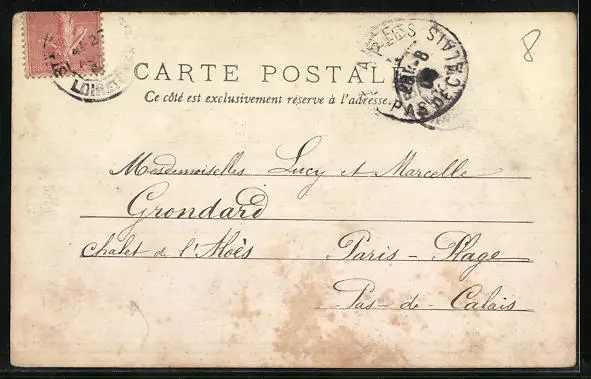 8
CARTE POSTALE
Ce côté est exclusivement réservé à l'adresse.
LOIR-ET-CHER
PAS DE CALAIS
Mesdemoiselles Lucy et Marcelle
Grondard
Chalet de l'Aloès Paris-Plage
Pas-de-Calais